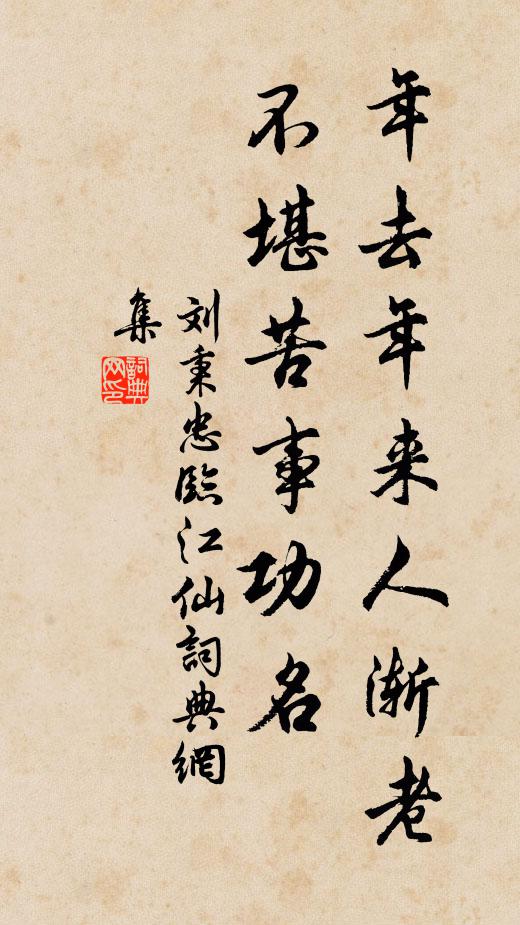 年去年来人渐老
不堪苦事功名
刘秉忠臨江仙詞典網
集
詞典网印